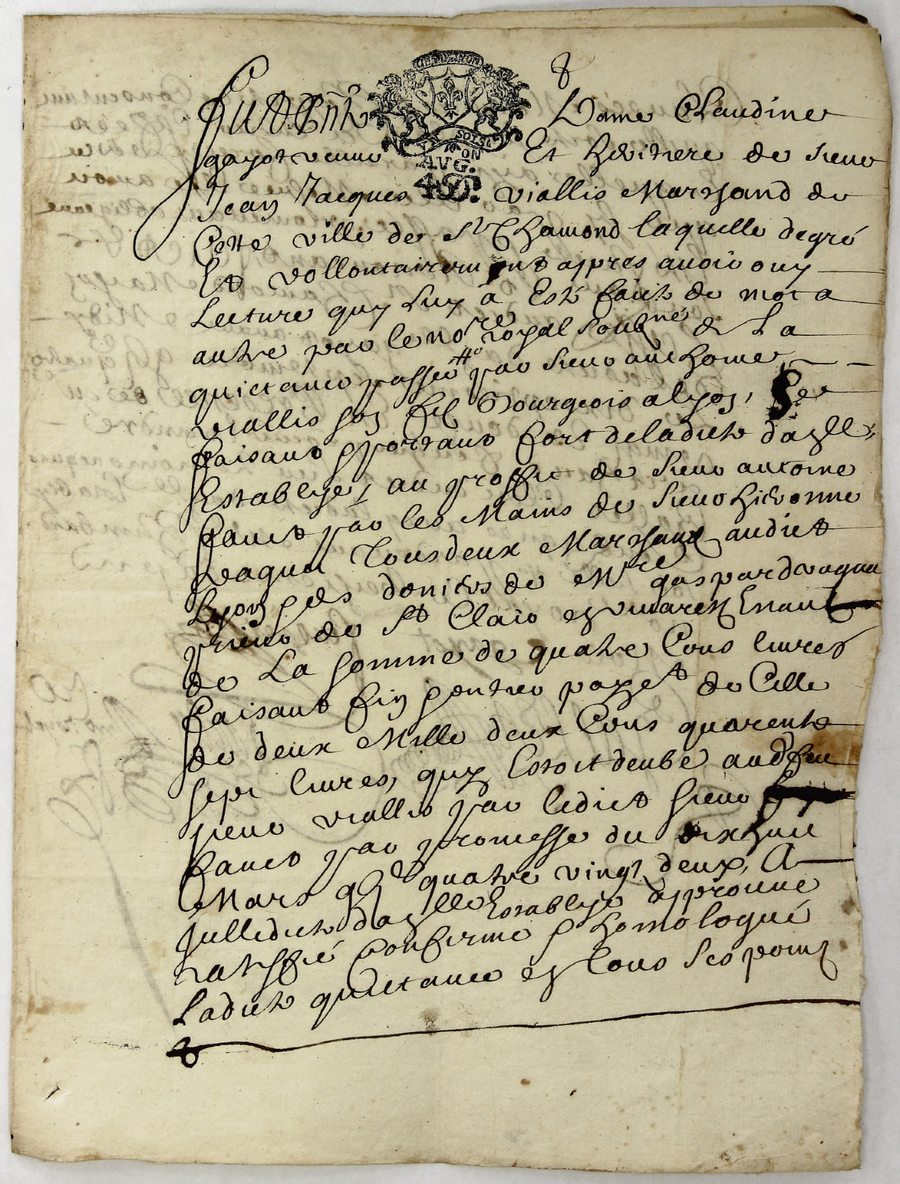 8
GENERON
SOLS
LYON
AVG.
Fut Pnt Dame Claudine
gayot veuve Et heritiere de sieur
Jean Jacques Viallis Marchand de
Cette ville de St Chamond laquelle de gré
Et vollontairement appres avoir ouy
Lecture quy luy à Esté faite de mot a
autre par le nore royal soubné de La
quictance passée par sieur
viallis son fil Bourgeois a lyon,
faisant & portant fort de ladicte dalle
Establye, au proffit de sieur antoine
par les Mains de sieur hierosme
Tous deux Marchand audict
Lyon des deniers de Mre gaspard
prieur de St Clair en vivaretz
de La somme de quatre Cens livres
faisant fin & entier payet de Celle
de deux Mille deux Cens quarente
sept livres, quy Estoit deube aud feu
sieur viallis par ledict sieur
par promesse du dixhuit
Mars quatre vingt deux, A
julledicte dalle Establye approuvé
ratiffié Confirmé & homologué
Ladicte quictance en tous ses points